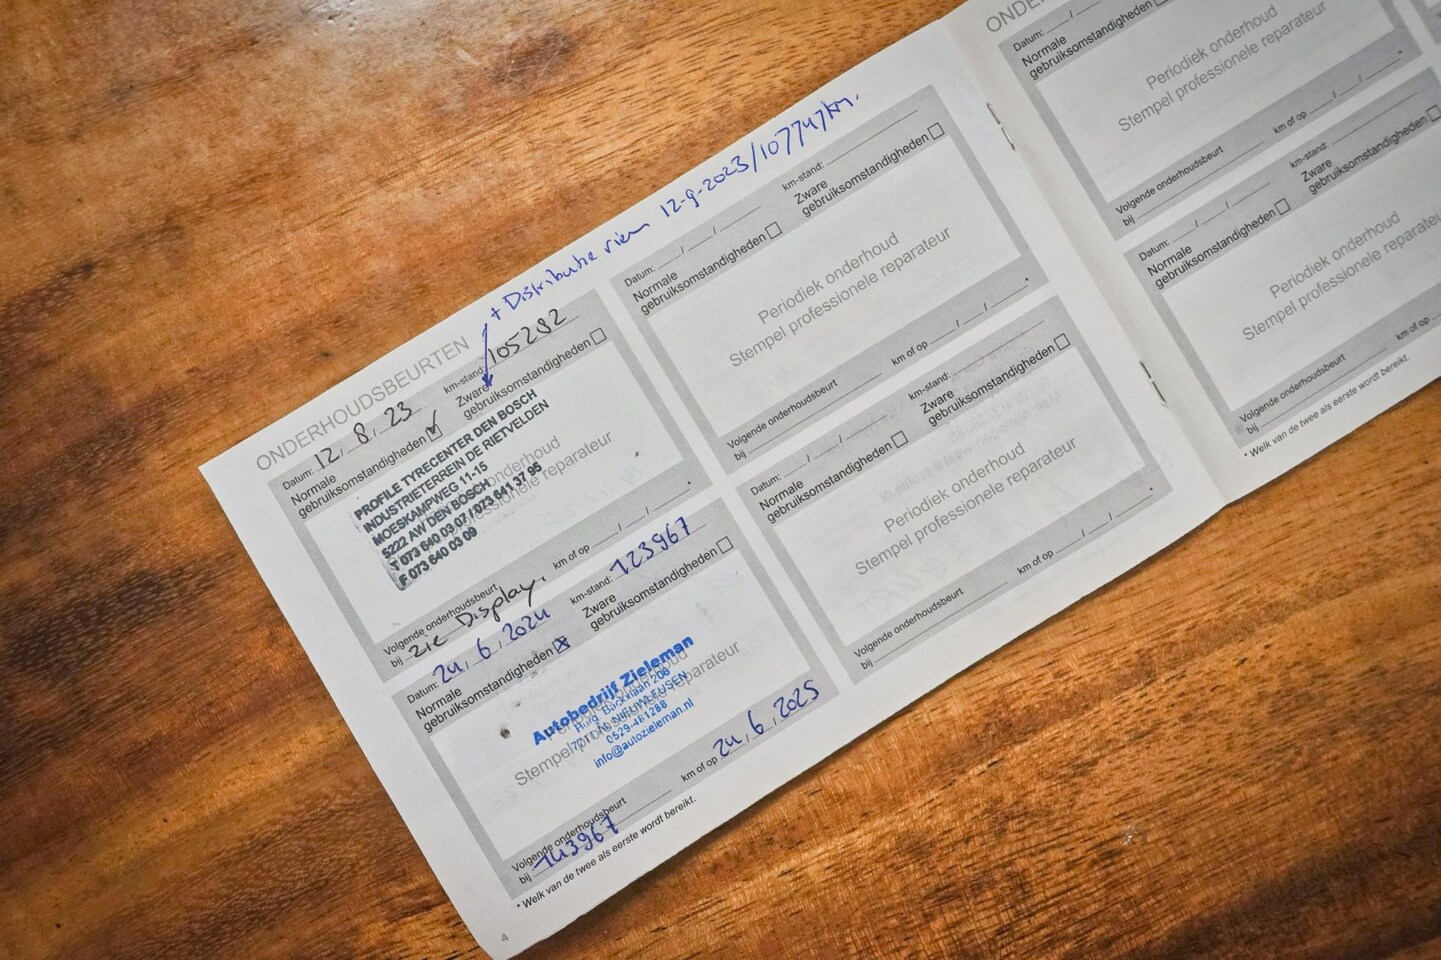 ONDERHOUDSBEURTEN
+ Distributie riem 12-9-2023/107747km.
Datum: 12, 8, 23 km-stand: 105292
Normale gebruiksomstandigheden
Zware gebruiksomstandigheden
PROFILE TYRECENTER DEN BOSCH
INDUSTRIETERREIN DE RIETVELDEN
MOESKAMPWEG 11-15
5222 AW DEN BOSCH
T 073 640 03 07 / 073 641 37 95
F 073 640 03 09
Volgende onderhoudsbeurt
bij zie Display. km of op
Datum: 24, 6, 2024 km-stand: 123967
Normale gebruiksomstandigheden
Zware gebruiksomstandigheden
Autobedrijf Zieleman
Burg. Backxlaan 208
NIEUWLEUSEN
0529-481288
info@autozieleman.nl
Stempel professionele reparateur
Volgende onderhoudsbeurt
bij 143967 km of op 24, 6, 2025
* Welk van de twee als eerste wordt bereikt.
4
Datum: km-stand:
Normale gebruiksomstandigheden
Zware gebruiksomstandigheden
Periodiek onderhoud
Stempel professionele reparateur
Volgende onderhoudsbeurt
bij km of op
Datum: km-stand:
Normale gebruiksomstandigheden
Zware gebruiksomstandigheden
Periodiek onderhoud
Stempel professionele reparateur
Volgende onderhoudsbeurt
bij km of op
Datum:
Normale gebruiksomstandigheden
Periodiek onderhoud
Stempel professionele reparateur
Volgende onderhoudsbeurt
bij km of op
Datum: km-stand:
Normale gebruiksomstandigheden
Zware gebruiksomstandigheden
Periodiek onderhoud
Stempel professionele
Volgende onderhoudsbeurt
bij km of op
* Welk van de twee als eerste wordt bereikt.